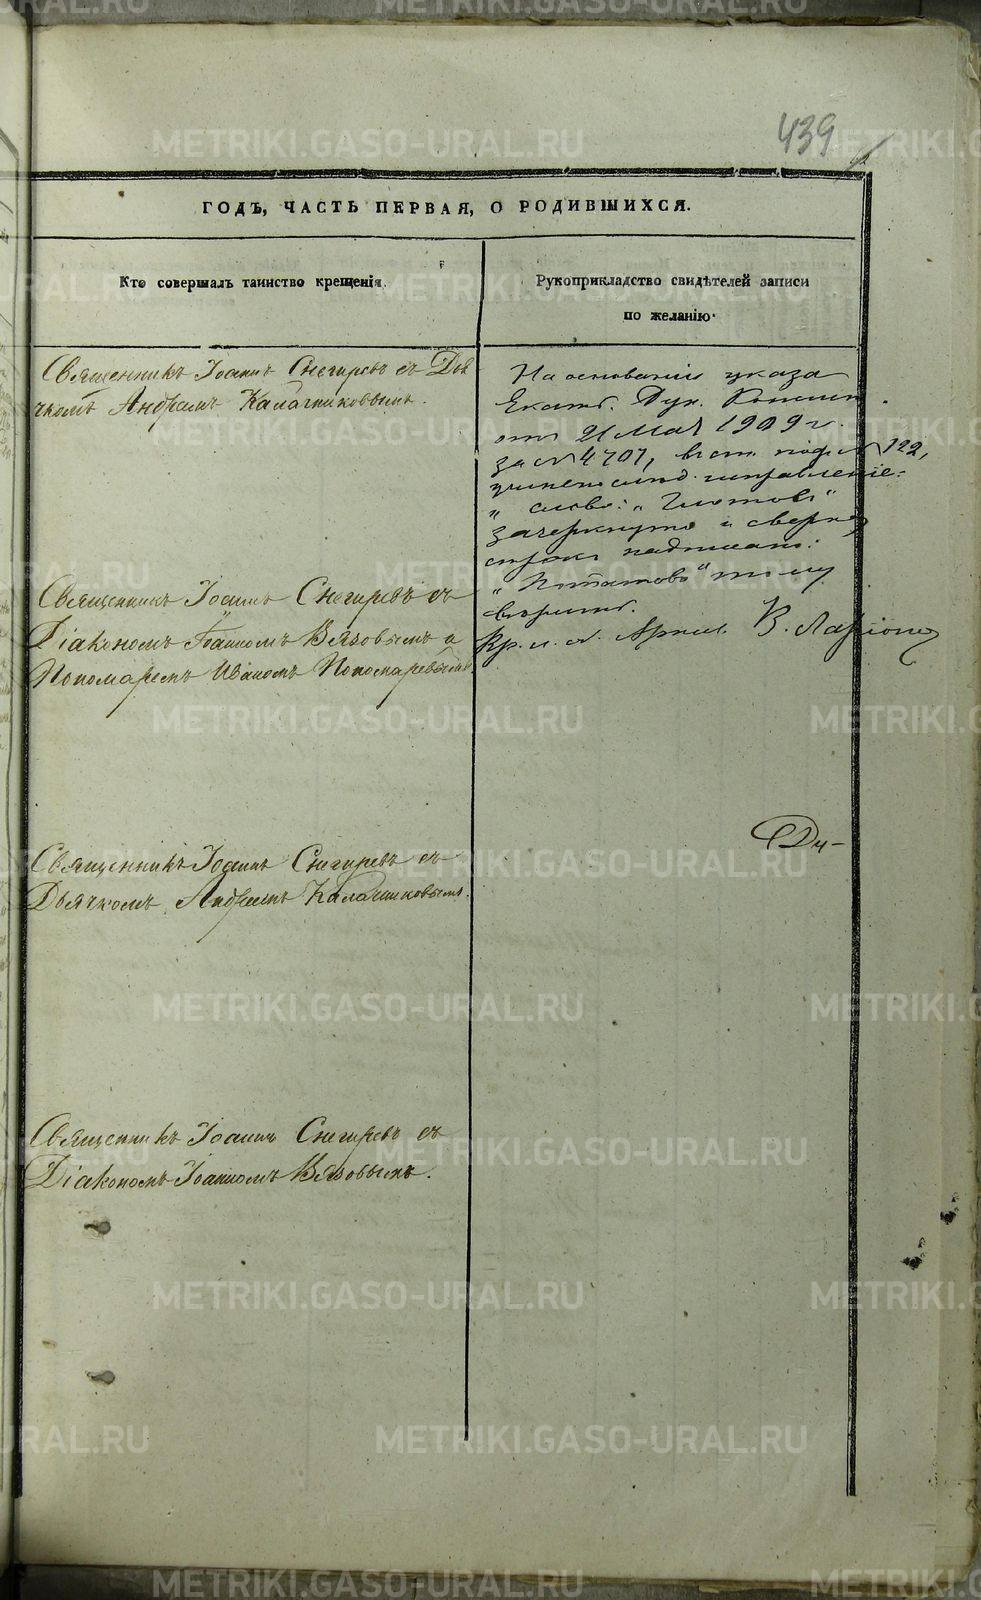 439
ГОДЪ, ЧАСТЬ ПЕРВАЯ, О РОДИВШИХСЯ.
Кто совершалъ таинство крещенія.
Рукоприкладство свидѣтелей записи
по желанію.
Священникъ Іоаннъ Снегиревъ съ Дья
чкомъ Андреемъ Калачниковымъ.
Священникъ Іоаннъ Снегиревъ съ
Діакономъ Іоанномъ Вязовымъ и
Пономаремъ Иваномъ Пономаревымъ
Священникъ Іоаннъ Снегиревъ съ
Дьячкомъ Андреемъ Калачниковымъ.
Священникъ Іоаннъ Снегиревъ съ
Діакономъ Іоанномъ Вязовымъ.
На основаніи указа
Екатб. Дух. Консист.
отъ 21 Мая 1909 г.
за № 4701, въ ст. подъ № 122,
учинено слѣд. исправленіе:
" слово: "
зачеркнуто и сверху
строки надписано:
" тому
вѣрить.
В. Ларіонов
METRIKI.GASO-URAL.RU